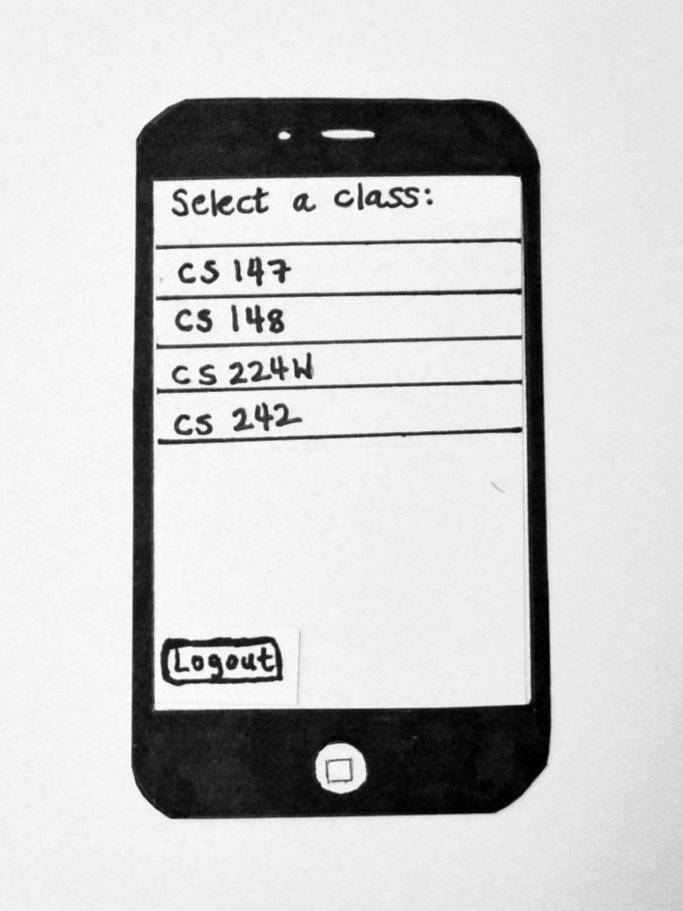 Select a class:
CS 147
CS 148
CS 224W
CS 242
Logout